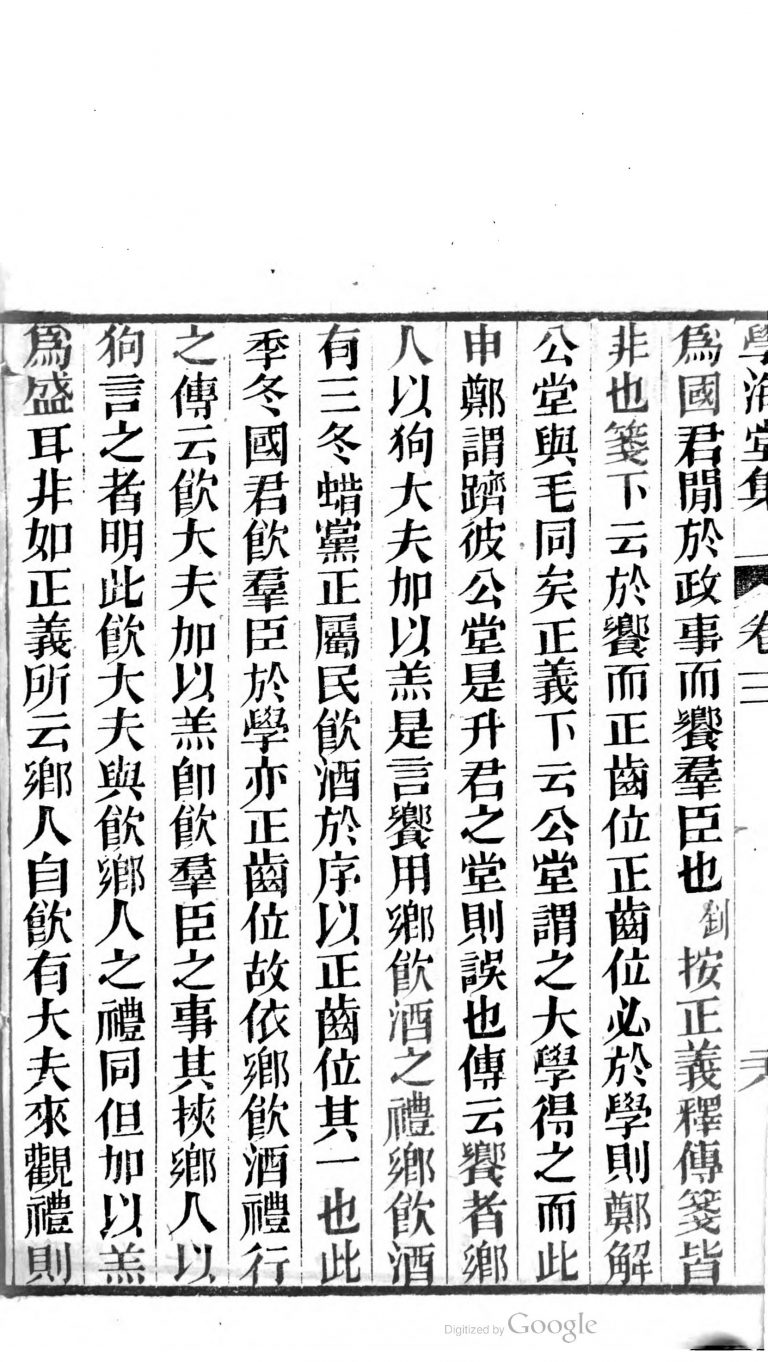 學海堂集 卷三
爲國君閒於政事而饗羣臣也釗按正義釋傳箋皆
非也箋下云於饗而正齒位正齒位必於學則鄭解
公堂與毛同矣正義下云公堂謂之大學得之而此
申鄭謂躋彼公堂是升君之堂則誤也傳云饗者鄉
人以狗大夫加以羔是言饗用鄉飮酒之禮鄉飮酒
有三冬蜡黨正屬民飮酒於序以正齒位其一也此
季冬國君飮羣臣於學亦正齒位故依鄉飮酒禮行
之傳云飮大夫加以羔卽飮羣臣之事其挾鄉人以
狗言之者明此飮大夫與飮鄉人之禮同但加以羔
爲盛耳非如正義所云鄉人自飮有大夫來觀禮則
Digitized by Google